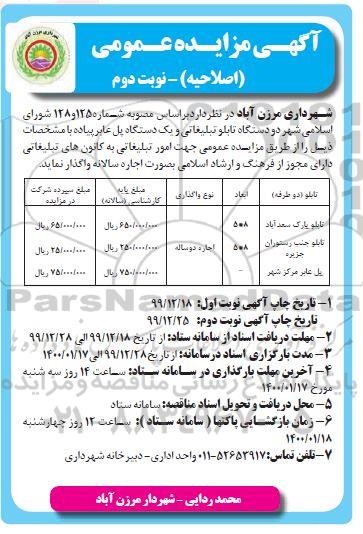 آگهی مزایده عمومی
(اصلاحیه) - نوبت دوم
شهرداری مرزن آباد در نظر دارد براساس مصوبه شماره ۱۲۵و۱۲۸ شورای
اسلامی شهر دو دستگاه تابلو تبلیغاتی و یک دستگاه پل عابر پیاده با مشخصات
ذیل را از طریق مزایده عمومی جهت امور تبلیغاتی به کانون های تبلیغاتی
دارای مجوز از فرهنگ و ارشاد اسلامی بصورت اجاره سالانه واگذار نماید.
تابلو (دو طرفه) ابعاد نوع واگذاری مبلغ پایه کارشناسی (سالانه) مبلغ سپرده شرکت در مزایده
تابلو پارک سعدآباد ۵*۸ ۶۵۰/۰۰۰/۰۰۰ ریال ۶۵/۰۰۰/۰۰۰ ریال
تابلو جنب رستوران جزیره ۵*۸ اجاره دوساله ۲۵۰/۰۰۰/۰۰۰ ریال ۲۵/۰۰۰/۰۰۰ ریال
پل عابر مرکز شهر - ۷۵۰/۰۰۰/۰۰۰ ریال ۷۵/۰۰۰/۰۰۰ ریال
۱- تاریخ چاپ آگهی نوبت اول: ۹۹/۱۲/۱۸
تاریخ چاپ آگهی نوبت دوم: ۹۹/۱۲/۲۵
۲- مهلت دریافت اسناد از سامانه ستاد: از تاریخ ۹۹/۱۲/۱۸ الی ۹۹/۱۲/۲۸
۳- مدت بارگزاری اسناد در سامانه: از تاریخ ۹۹/۱۲/۲۸ الی ۱۴۰۰/۰۱/۱۷
۴- آخرین مهلت بارگذاری در سامانه ستاد: ساعت ۱۴ روز سه شنبه
مورخ ۱۴۰۰/۰۱/۱۷
۵- محل دریافت و تحویل اسناد مناقصه: سامانه ستاد
۶- زمان بازگشایی پاکتها ( سامانه ستاد ): ساعت ۱۲ روز چهارشنبه
۱۴۰۰/۰۱/۱۸
۷- تلفن تماس: ۵۲۶۵۳۹۱۷-۰۱۱ واحد اداری- دبیرخانه شهرداری
محمد ردایی - شهردار مرزن آباد